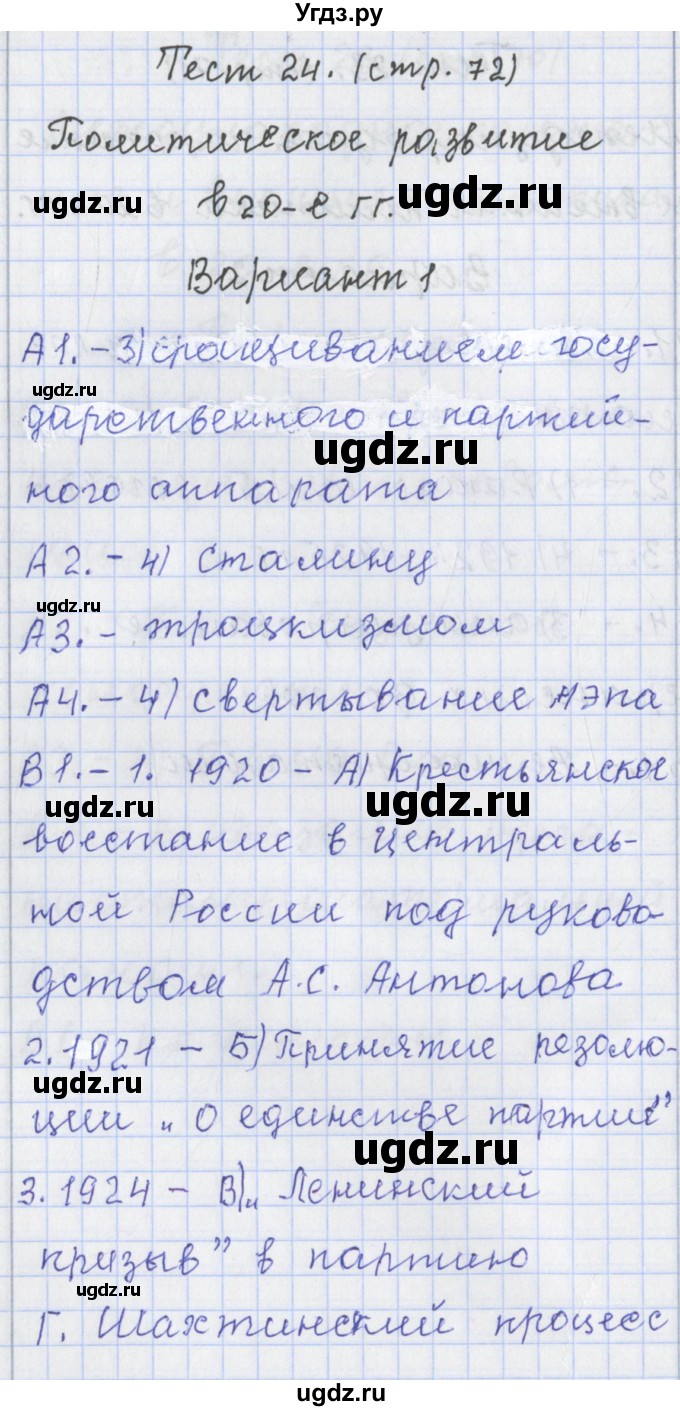 Угдз.ру
Тест 24. (стр. 72)
Политическое развитие
в 20-е гг.
ugdz.ru
ugdz.ru
Вариант 1
А1. - 3) сращиванием госу-
ugdz.ru
дарственного и партий-
ugdz.ru
ного аппарата
А2. - 4) Сталину
ugdz.ru
А3. - троцкизмом
А4. - 4) свертывание нэпа
В1. - 1. 1920 - А) Крестьянское
ugdz.ru
ugdz.ru
восстание в централь-
ной России под руково-
дством А.С. Антонова
2. 1921 - Б) Принятие резолю-
ugdz.ru
ции „О единстве партии”
ugdz.ru
3. 1924 - В) „Ленинский
призыв” в партию
ugdz.ru
Г. Шахтинский процесс
ugdz.ru